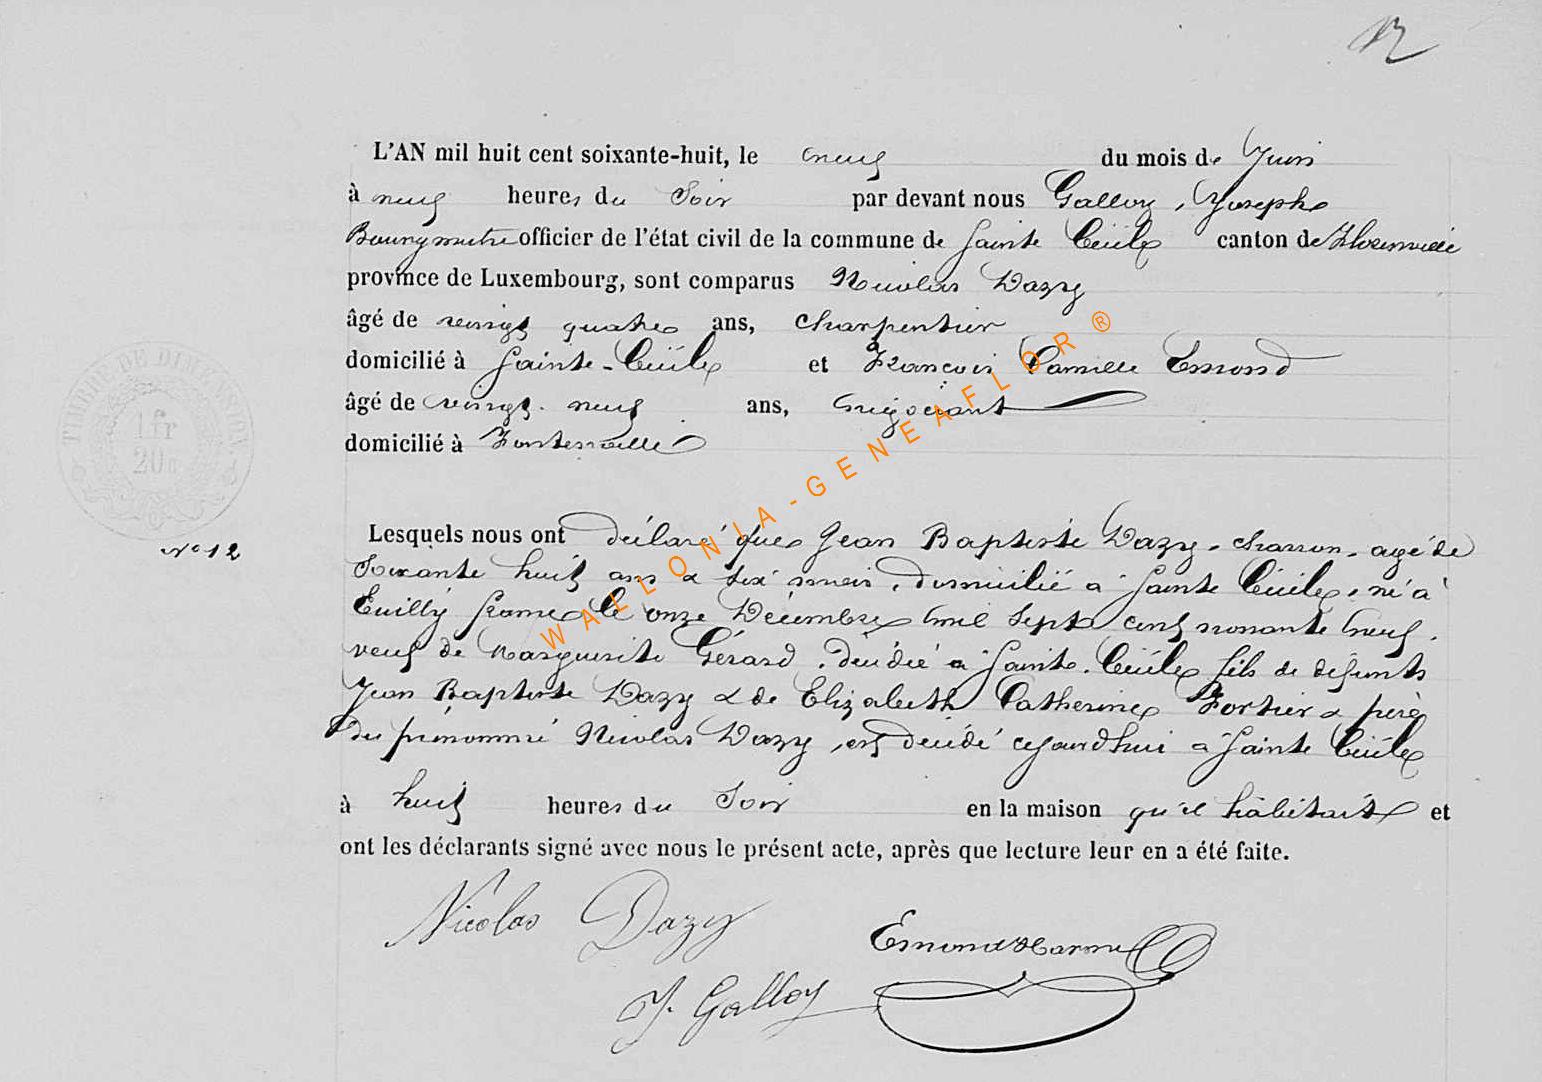 12
L'AN mil huit cent soixante-huit, le neuf du mois de Juin
à neuf heures du Soir par devant nous Galloy, Joseph
Bourgmestre officier de l'état civil de la commune de Sainte Cécile canton de Florenville
province de Luxembourg, sont comparus Nicolas Dazy
âgé de vingt quatre ans, charpentier
domicilié à Sainte-Cécile et François Camille Emond
âgé de vingt-neuf ans, négociant
domicilié à Fontenoille
TIMBRE DE DIMENSION
1 fr
20
Lesquels nous ont déclaré que Jean Baptiste Dazy, charron, agé de
N° 12
Soixante huit ans & six mois, domicilié à Sainte Cécile, né à
Euilly france le onze Décembre mil sept cent nonante neuf,
veuf de Marguerite Gérard, décédée à Sainte-Cécile fils de défunts
Jean Baptiste Dazy & de Elizabeth Catherine Fortier & père
du prénommé Nicolas Dazy, est décédé cejourd'hui à Sainte Cécile
à huit heures du Soir en la maison qu'il habitait et
ont les déclarants signé avec nous le présent acte, après que lecture leur en a été faite.
Nicolas Dazy
Emond
J. Galloy
WALLONIA-GENEAFLOR®